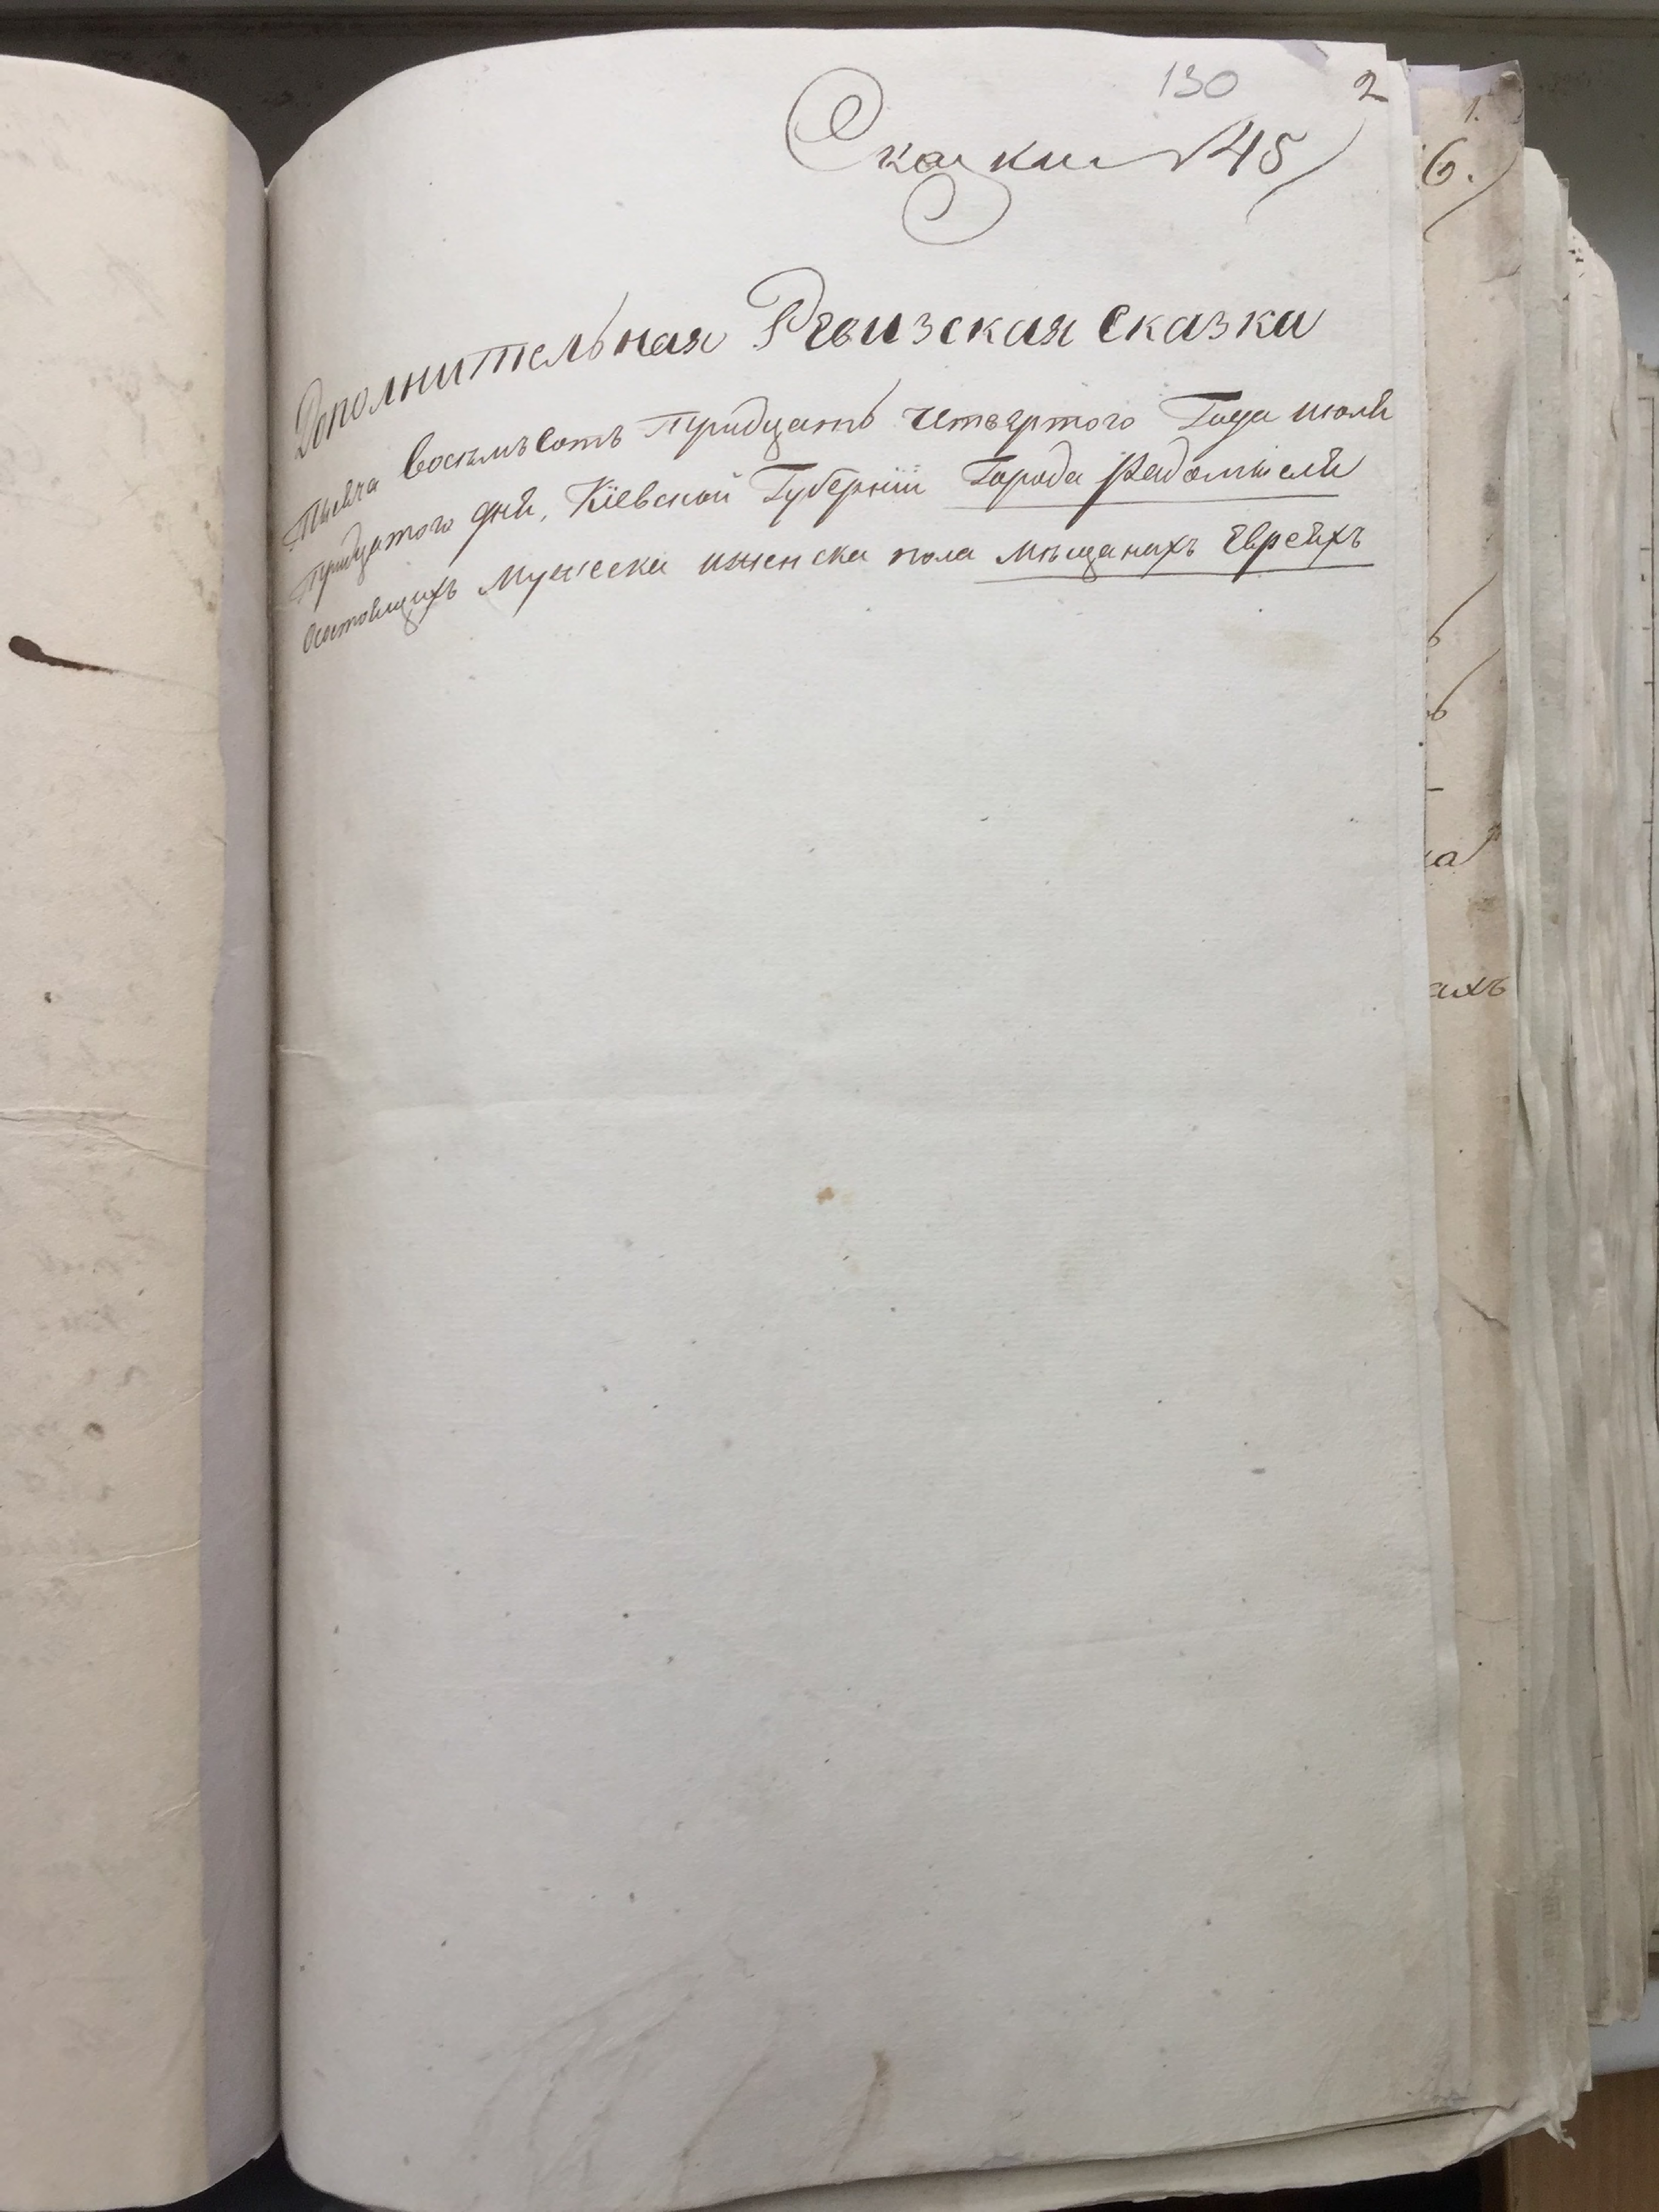 130 2
Сказки №45
Дополнительная Ревизская Сказка
тысяча восемьсотъ тридцать четвертого Года июля
тридцатого дня, Кіевской Губерніи Города Радомысля
состоящихъ мужеска иженска пола мѣщанахъ Евреяхъ
1.
6.
ь
ъ
а
ахъ